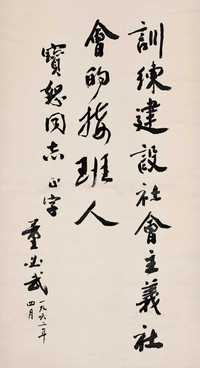 訓練建設社會主義社
會的接班人
寶恕同志 正字
董必武
一九六二年
四月